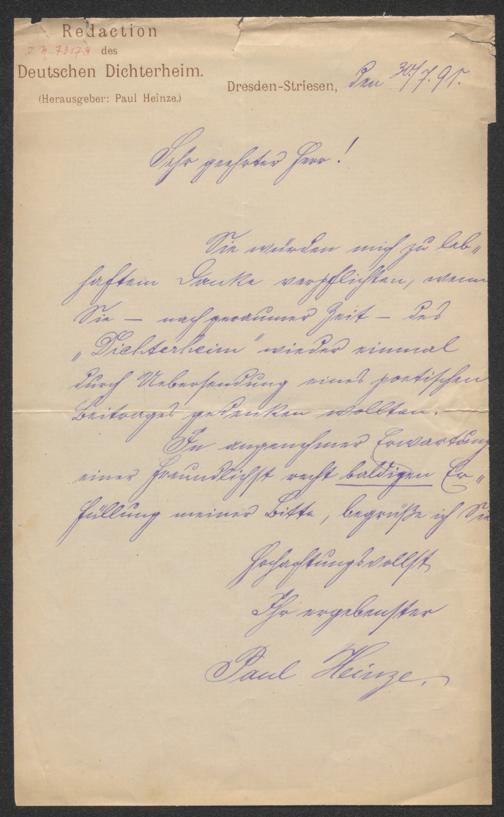 Redaction
des
Deutschen Dichterheim.
(Herausgeber: Paul Heinze.)
Dresden-Striesen, den 30/7. 95.
Sehr geehrter Herr!
Sie würden mich zu leb-
haftem Danke verpflichten, wenn
Sie — nach geraumer Zeit — des
„Dichterheim" wieder einmal
durch Uebersendung eines poetischen
Beitrages gedenken wollten.
In angenehmer Erwartung
einer freundlichst recht baldigen Er-
füllung meiner Bitte, begrüße ich Sie
Hochachtungsvollst
Ihr ergebenster
Paul Heinze.